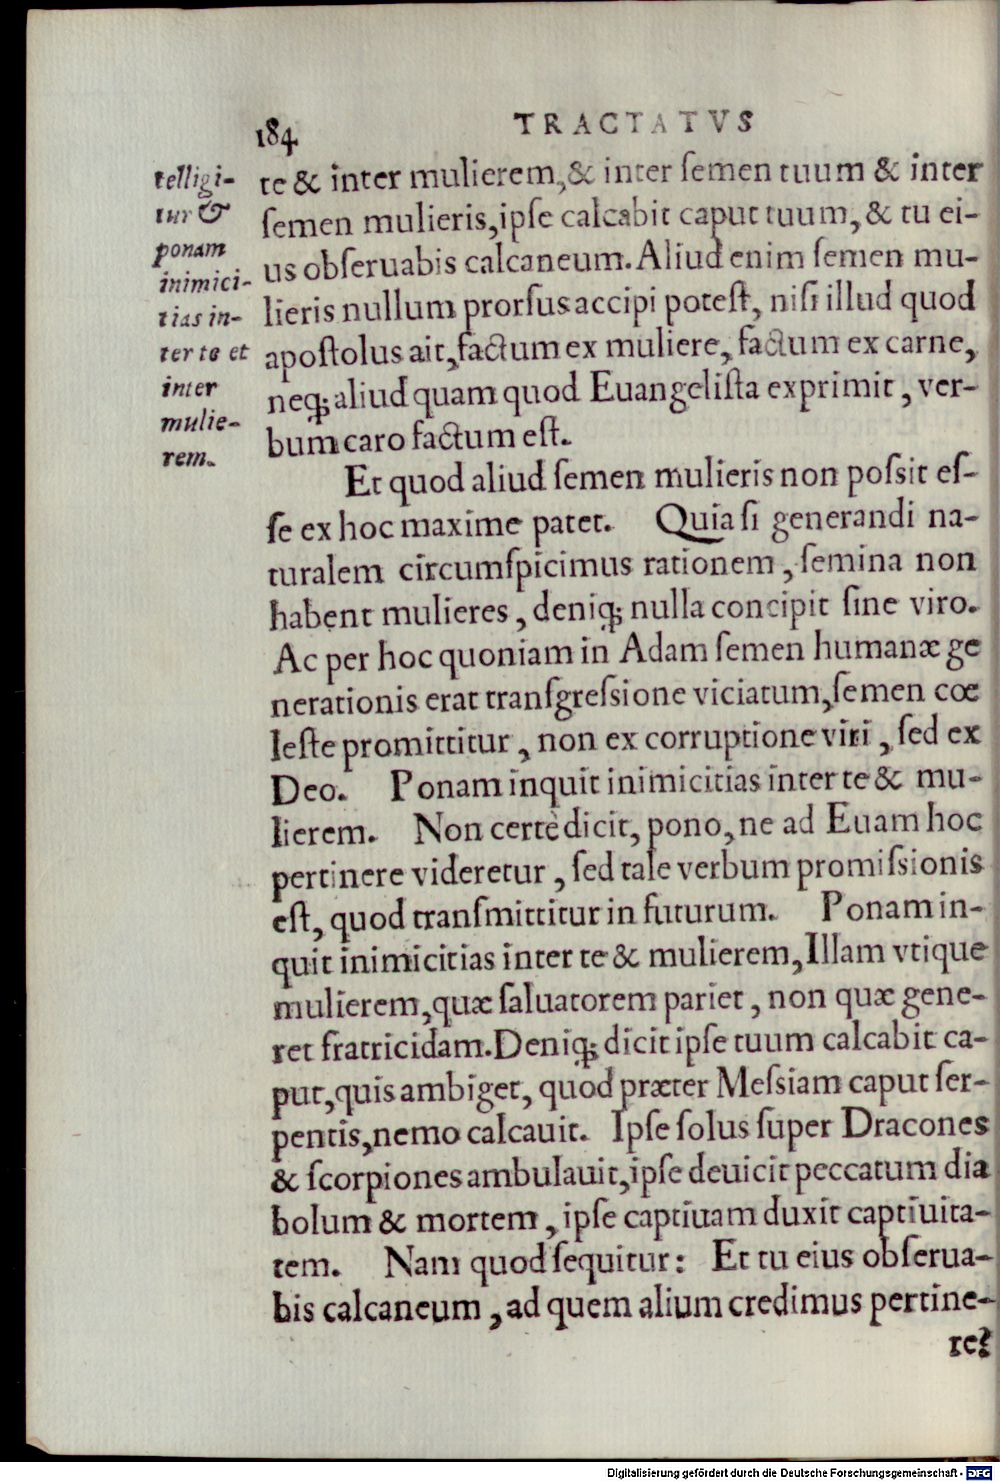 184 TRACTATVS
telligi-
tur &
ponam
inimici-
tias in-
ter te et
inter
mulie-
rem.
te & inter mulierem, & inter ſemen tuum & inter
ſemen mulieris, ipſe calcabit caput tuum, & tu ei-
us obſeruabis calcaneum. Aliud enim ſemen mu-
lieris nullum prorſus accipi poteſt, niſi illud quod
apoſtolus ait, factum ex muliere, factum ex carne,
neq; aliud quam quod Euangeliſta exprimit, ver-
bum caro factum eſt.
Et quod aliud ſemen mulieris non poſsit eſ-
ſe ex hoc maxime patet. Quia ſi generandi na-
turalem circumſpicimus rationem, ſemina non
habent mulieres, deniq; nulla concipit ſine viro.
Ac per hoc quoniam in Adam ſemen humanæ ge
nerationis erat tranſgreſsione viciatum, ſemen cœ
leſte promittitur, non ex corruptione viri, ſed ex
Deo. Ponam inquit inimicitias inter te & mu-
lierem. Non certè dicit, pono, ne ad Euam hoc
pertinere videretur, ſed tale verbum promiſsionis
eſt, quod tranſmittitur in futurum. Ponam in-
quit inimicitias inter te & mulierem, Illam vtique
mulierem, quæ ſaluatorem pariet, non quæ gene-
ret fratricidam. Deniq; dicit ipſe tuum calcabit ca-
put, quis ambiget, quod præter Meſsiam caput ſer-
pentis, nemo calcauit. Ipſe ſolus ſuper Dracones
& ſcorpiones ambulauit, ipſe deuicit peccatum dia
bolum & mortem, ipſe captiuam duxit captiuita-
tem. Nam quod ſequitur: Et tu eius obſerua-
bis calcaneum, ad quem alium credimus pertine-
re?
Digitalisierung gefördert durch die Deutsche Forschungsgemeinschaft - DFG